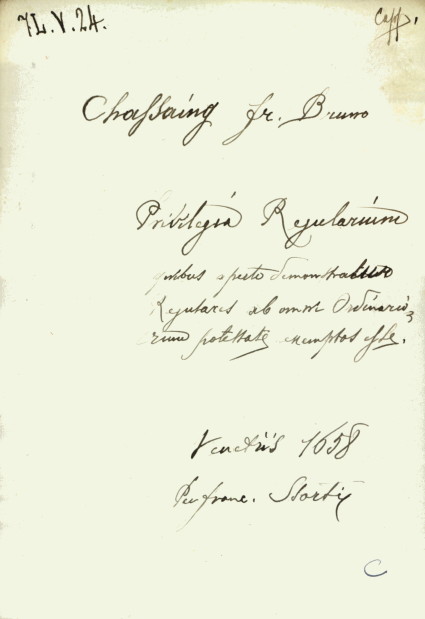 7L.V.24.
Capp.
Chassaing fr. Bruno
Privilegia Regularium
quibus aperte demonstratur
Regulares ab omni Ordinario-
rum potestate exemptos esse.
Venetiis 1658
Per franc. Storti
C